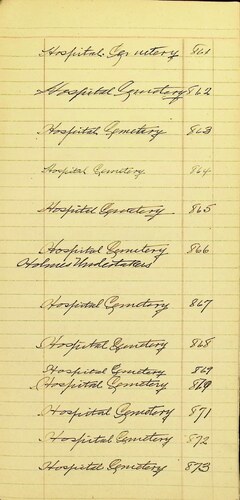 Hospital Cemetery 861
Hospital Cemetery 862
Hospital Cemetery 863
Hospital Cemetery 864
Hospital Cemetery 865
Hospital Cemetery 866
Holmes Undertakers
Hospital Cemetery 867
Hospital Cemetery 868
Hospital Cemetery 869
Hospital Cemetery 870
Hospital Cemetery 871
Hospital Cemetery 872
Hospital Cemetery 873